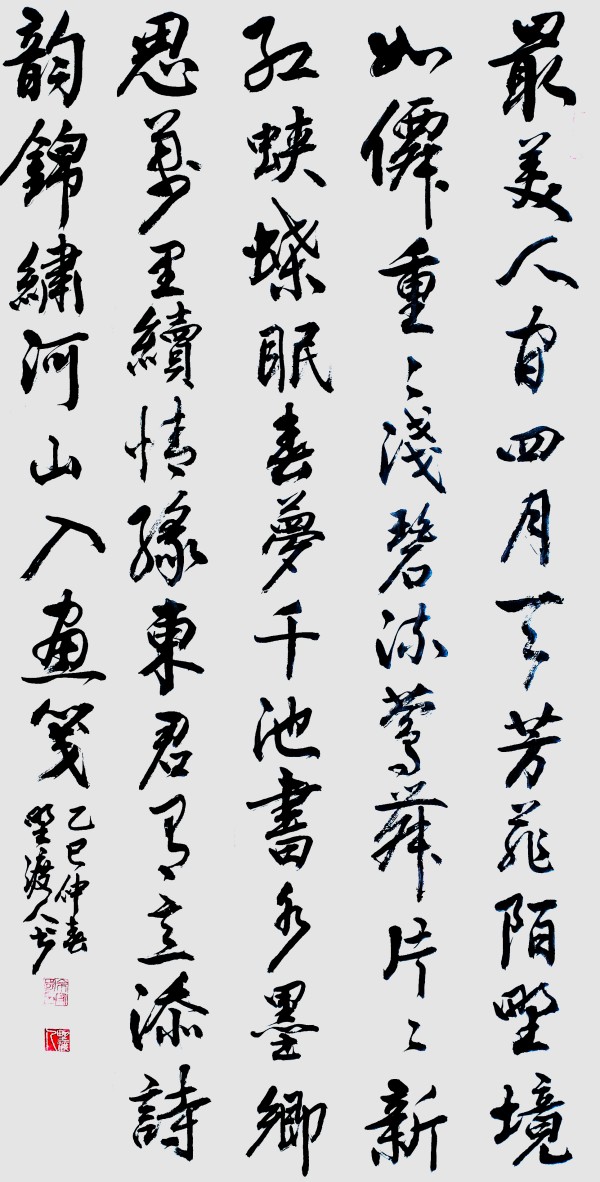 最美人間四月天芳菲陌野境
如僊重〻淺碧流鶯舞片〻新
紅蛺蝶眠春夢千池書水墨鄉
思萬里續情緣東君有意添詩
韻錦繡河山入畫箋
乙巳仲春
野渡人書